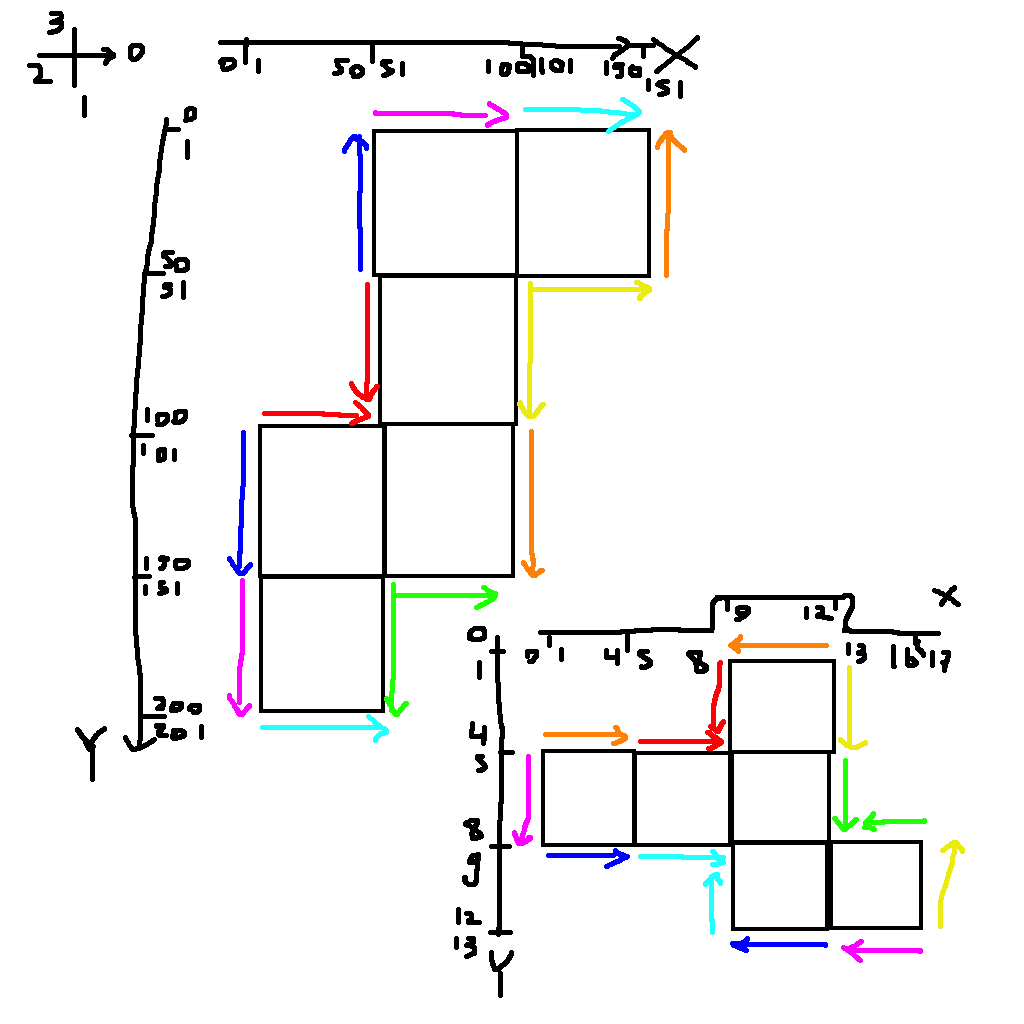 3
2 0
1
X
0 1 50 51 100 101 150 151
0
1
50
51
100
101
150
151
200
201
Y
X
9 12
0 1 4 5 8 13 16 17
0
1
4
5
8
9
12
13
Y